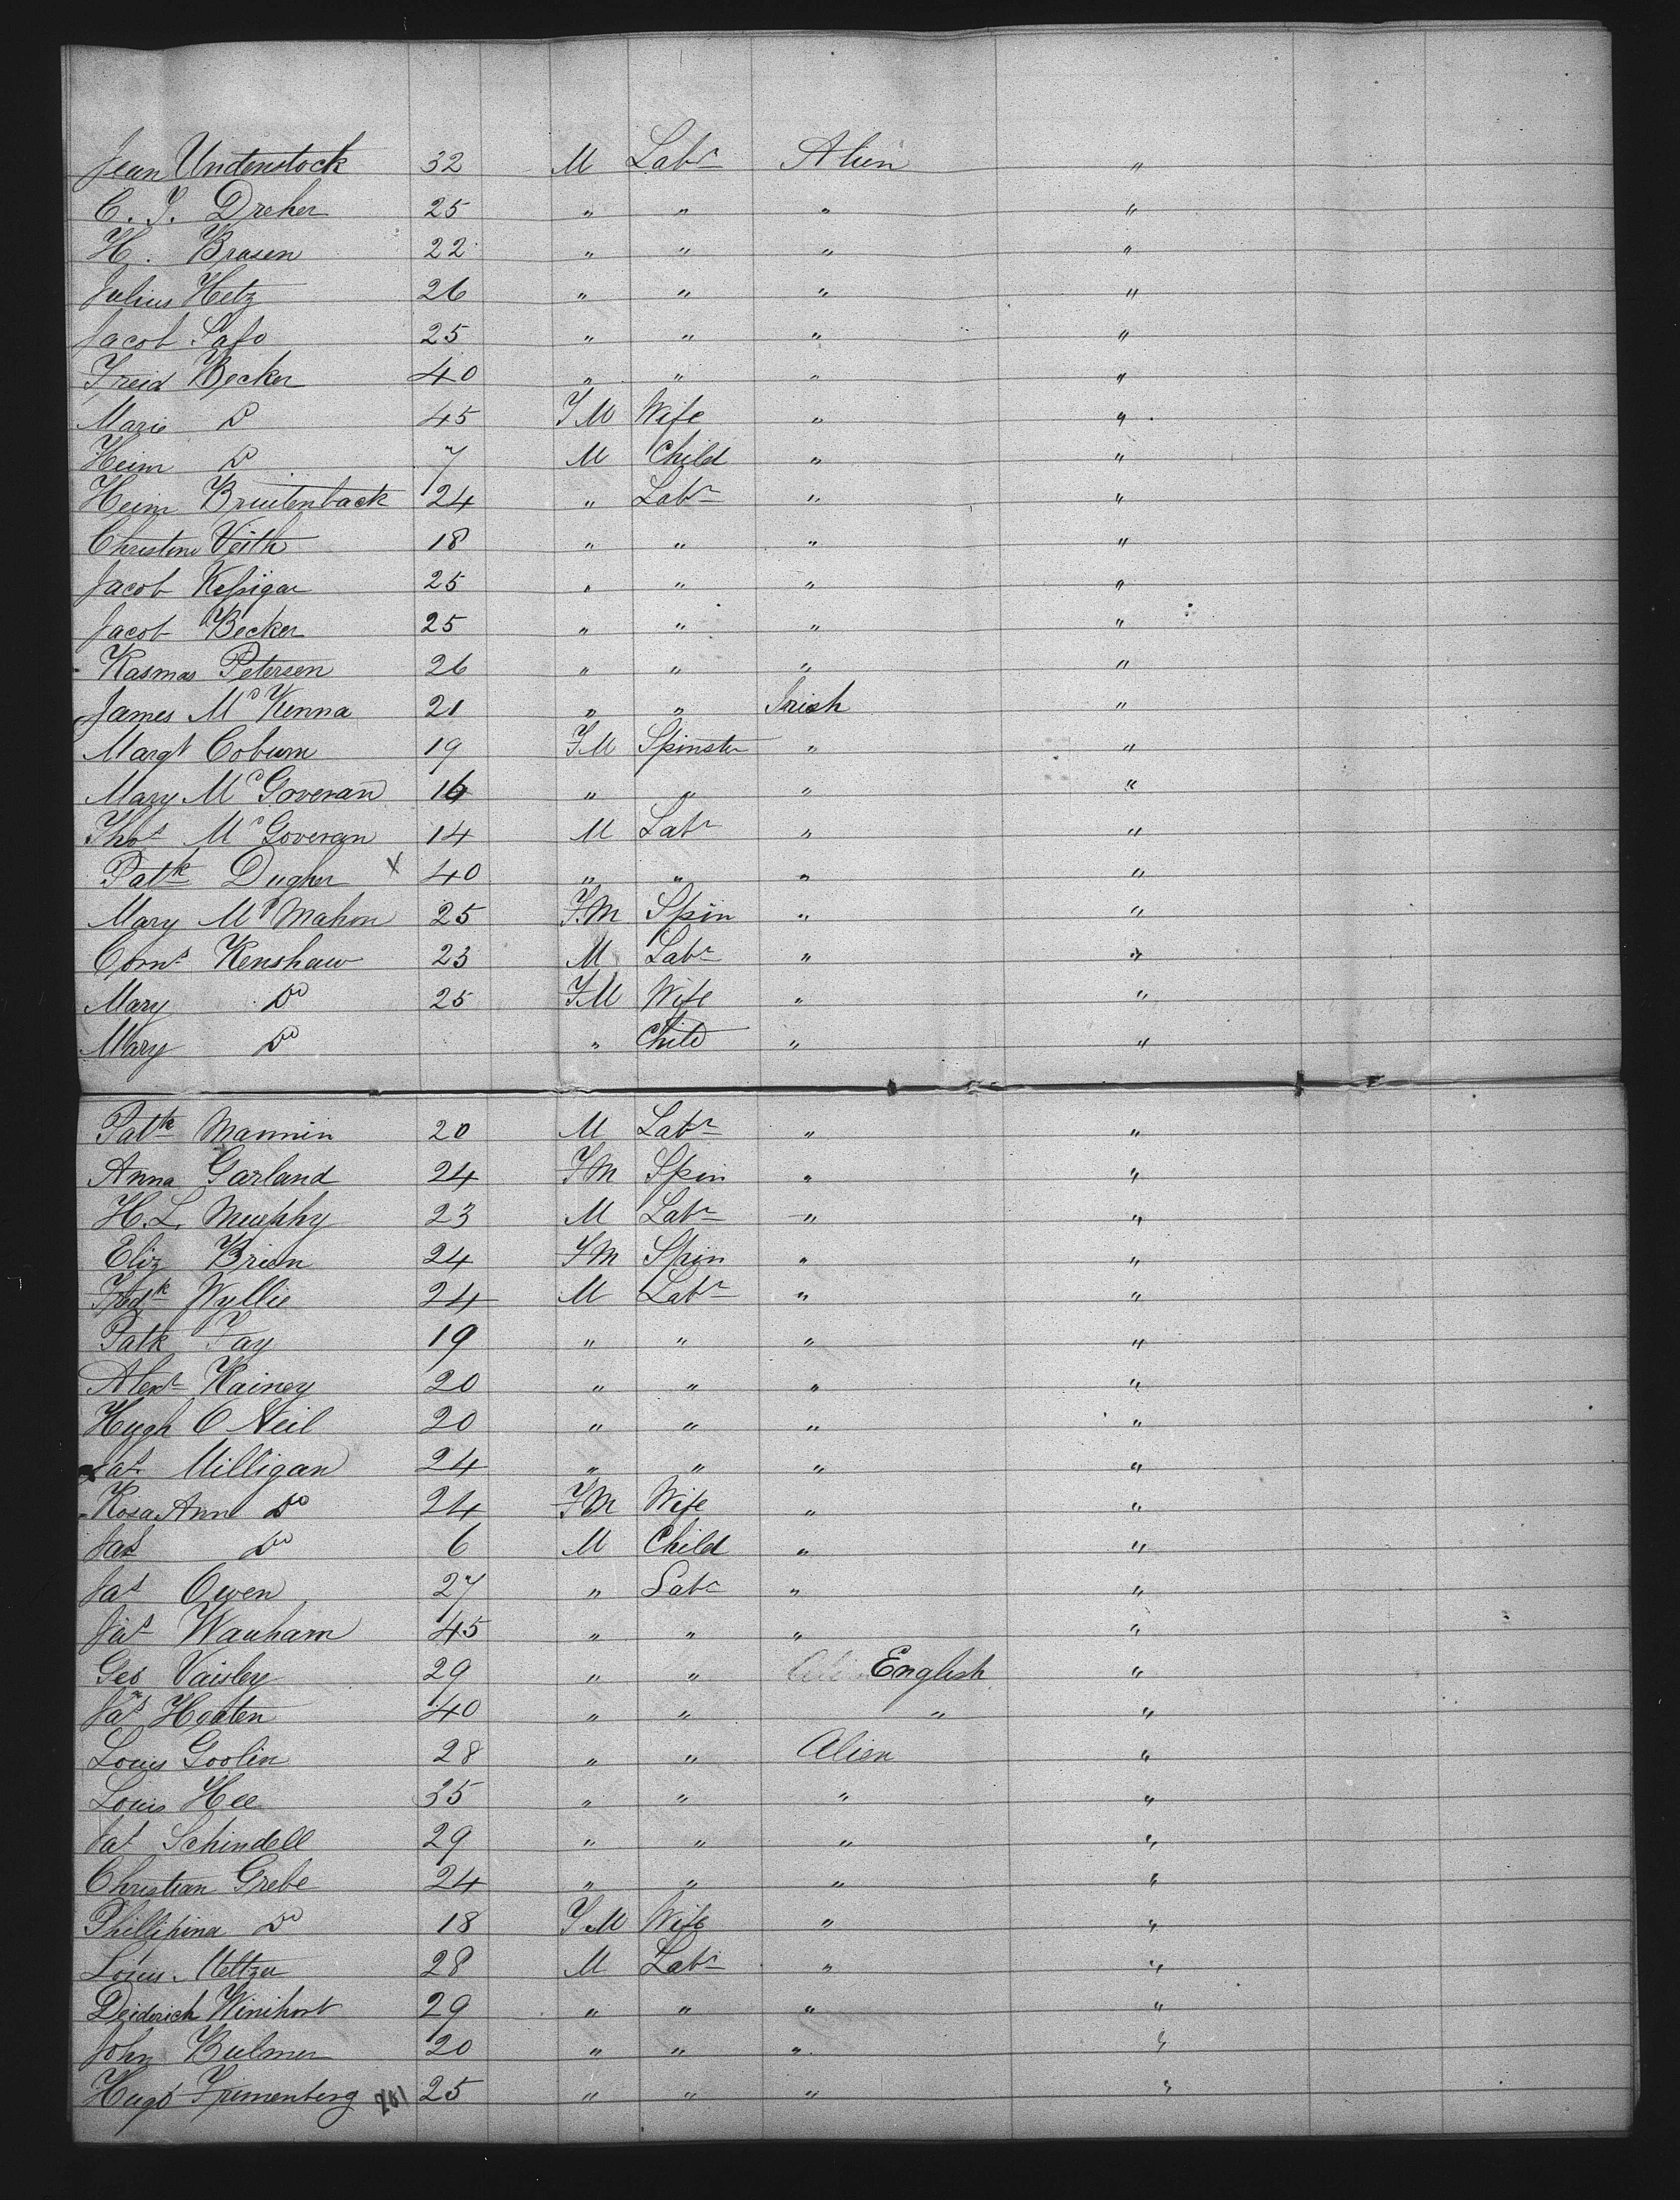 Jean Undenstock 32 M Labr Alien "
C. J. Dreher 25 " " " "
H. Brasen 22 " " " "
Julius Hetz 26 " " " "
Jacob Safo 25 " " " "
Freid Becker 40 " " " "
Marie Do 45 FM Wife " "
Heim Do 7 M Child " "
Heim Bruitenback 24 " Labr " "
Christine Veith 18 " " " "
Jacob 25 " " " "
Jacob Becker 25 " " " "
Rasmas Petersen 26 " " " "
James McKenna 21 " " Irish "
Margt Coburn 19 FM Spinster " "
Mary McGoveran 16 " " " "
Thos McGoveran 14 M Labr " "
Patk Dugher X 40 " " " "
Mary McMahon 25 FM Spin " "
Corns Kenshaw 23 M Labr " "
Mary Do 25 FM Wife " "
Mary Do " Child " "
Patk Mannin 20 M Labr " "
Anna Garland 24 FM Spin " "
H. L. Murphy 23 M Labr " "
Eliz Brien 24 FM Spin " "
Fredk Wyllie 24 M Labr " "
Patk Fay 19 " " " "
Alexr Kainey 20 " " " "
Hugh O Neil 20 " " " "
Jas Milligan 24 " " " "
Rosa Ann Do 24 FM Wife " "
Jas Do 6 M Child " "
Jas Owen 27 " Labr " "
Jas Wauham 45 " " " "
Geo Vaisley 29 " " English "
Jas Hooten 40 " " " "
Louis Goolin 28 " " Alien "
Louis Hee 35 " " " "
Jas Schindell 29 " " " "
Christian Grebe 24 " " " "
Phillipina Do 18 FM Wife " "
Louis Meltzer 28 M Labr " "
Deiderich Winihort 29 " " " "
John Bulmer 20 " " " "
Hugo 261 25 " " " "